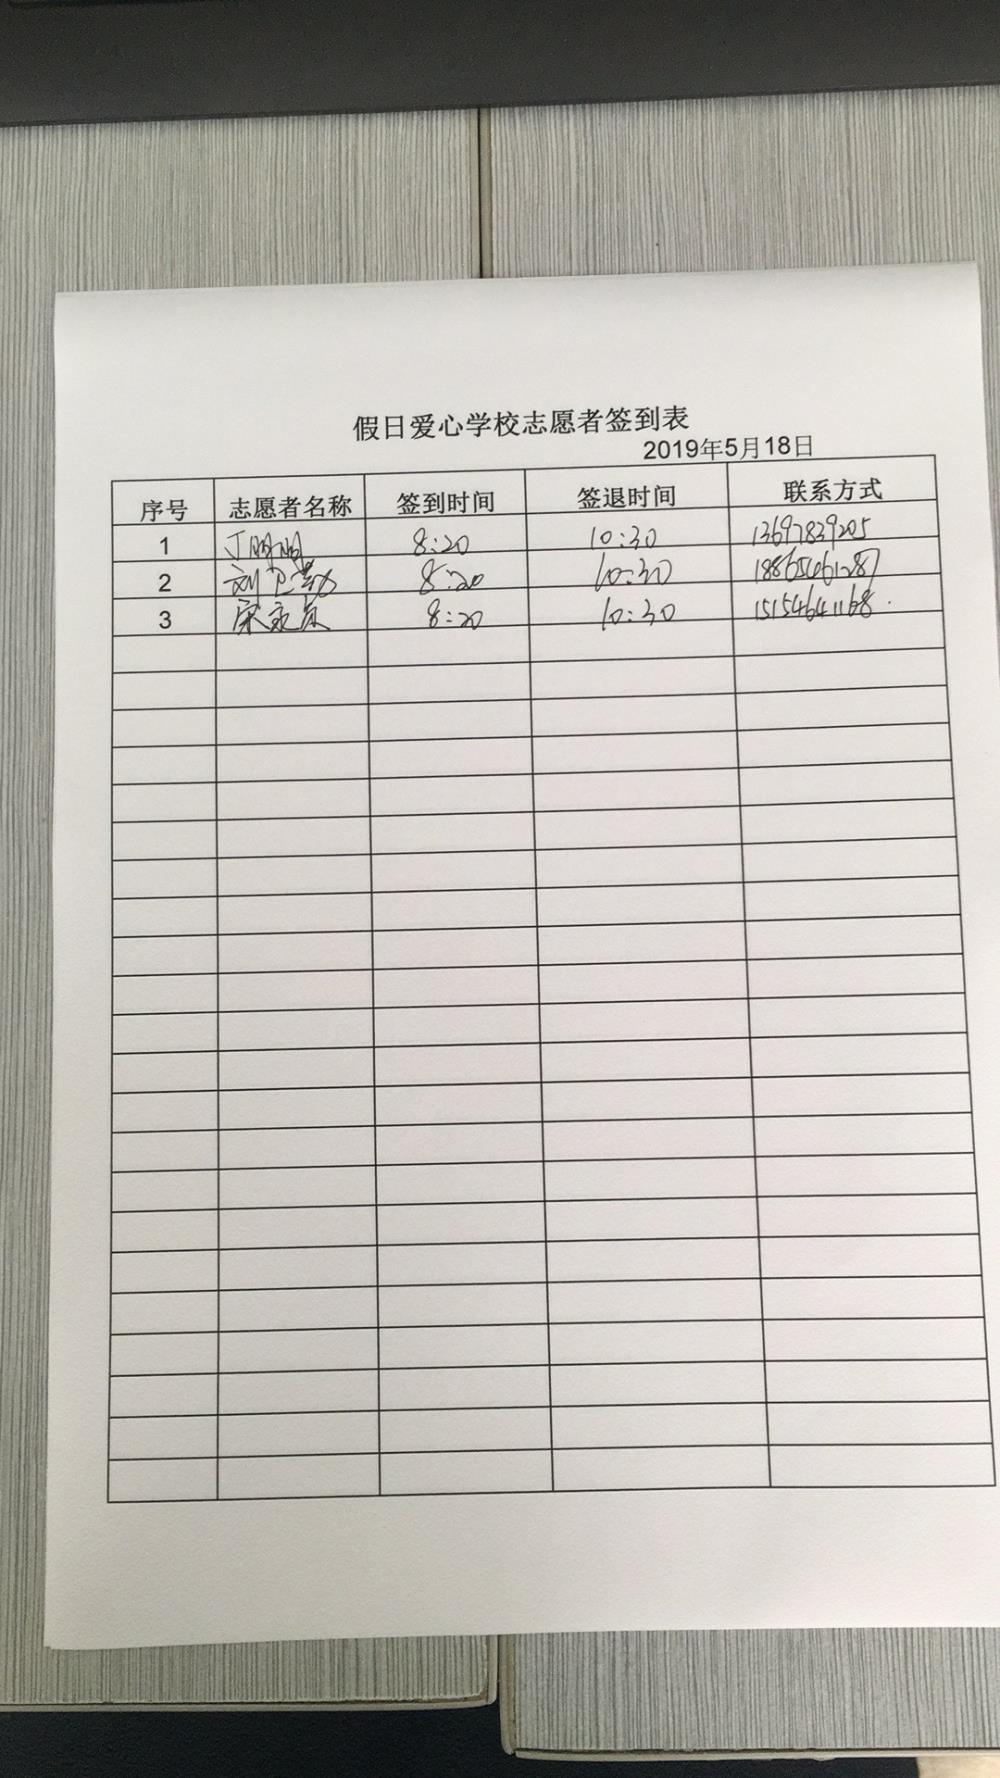 假日爱心学校志愿者签到表
2019年5月18日
序号 志愿者名称 签到时间 签退时间 联系方式
1 丁明明 8:20 10:30 13697839205
2 刘卫勤 8:20 10:30 18865461287
3 宋永贞 8:20 10:30 15154641168